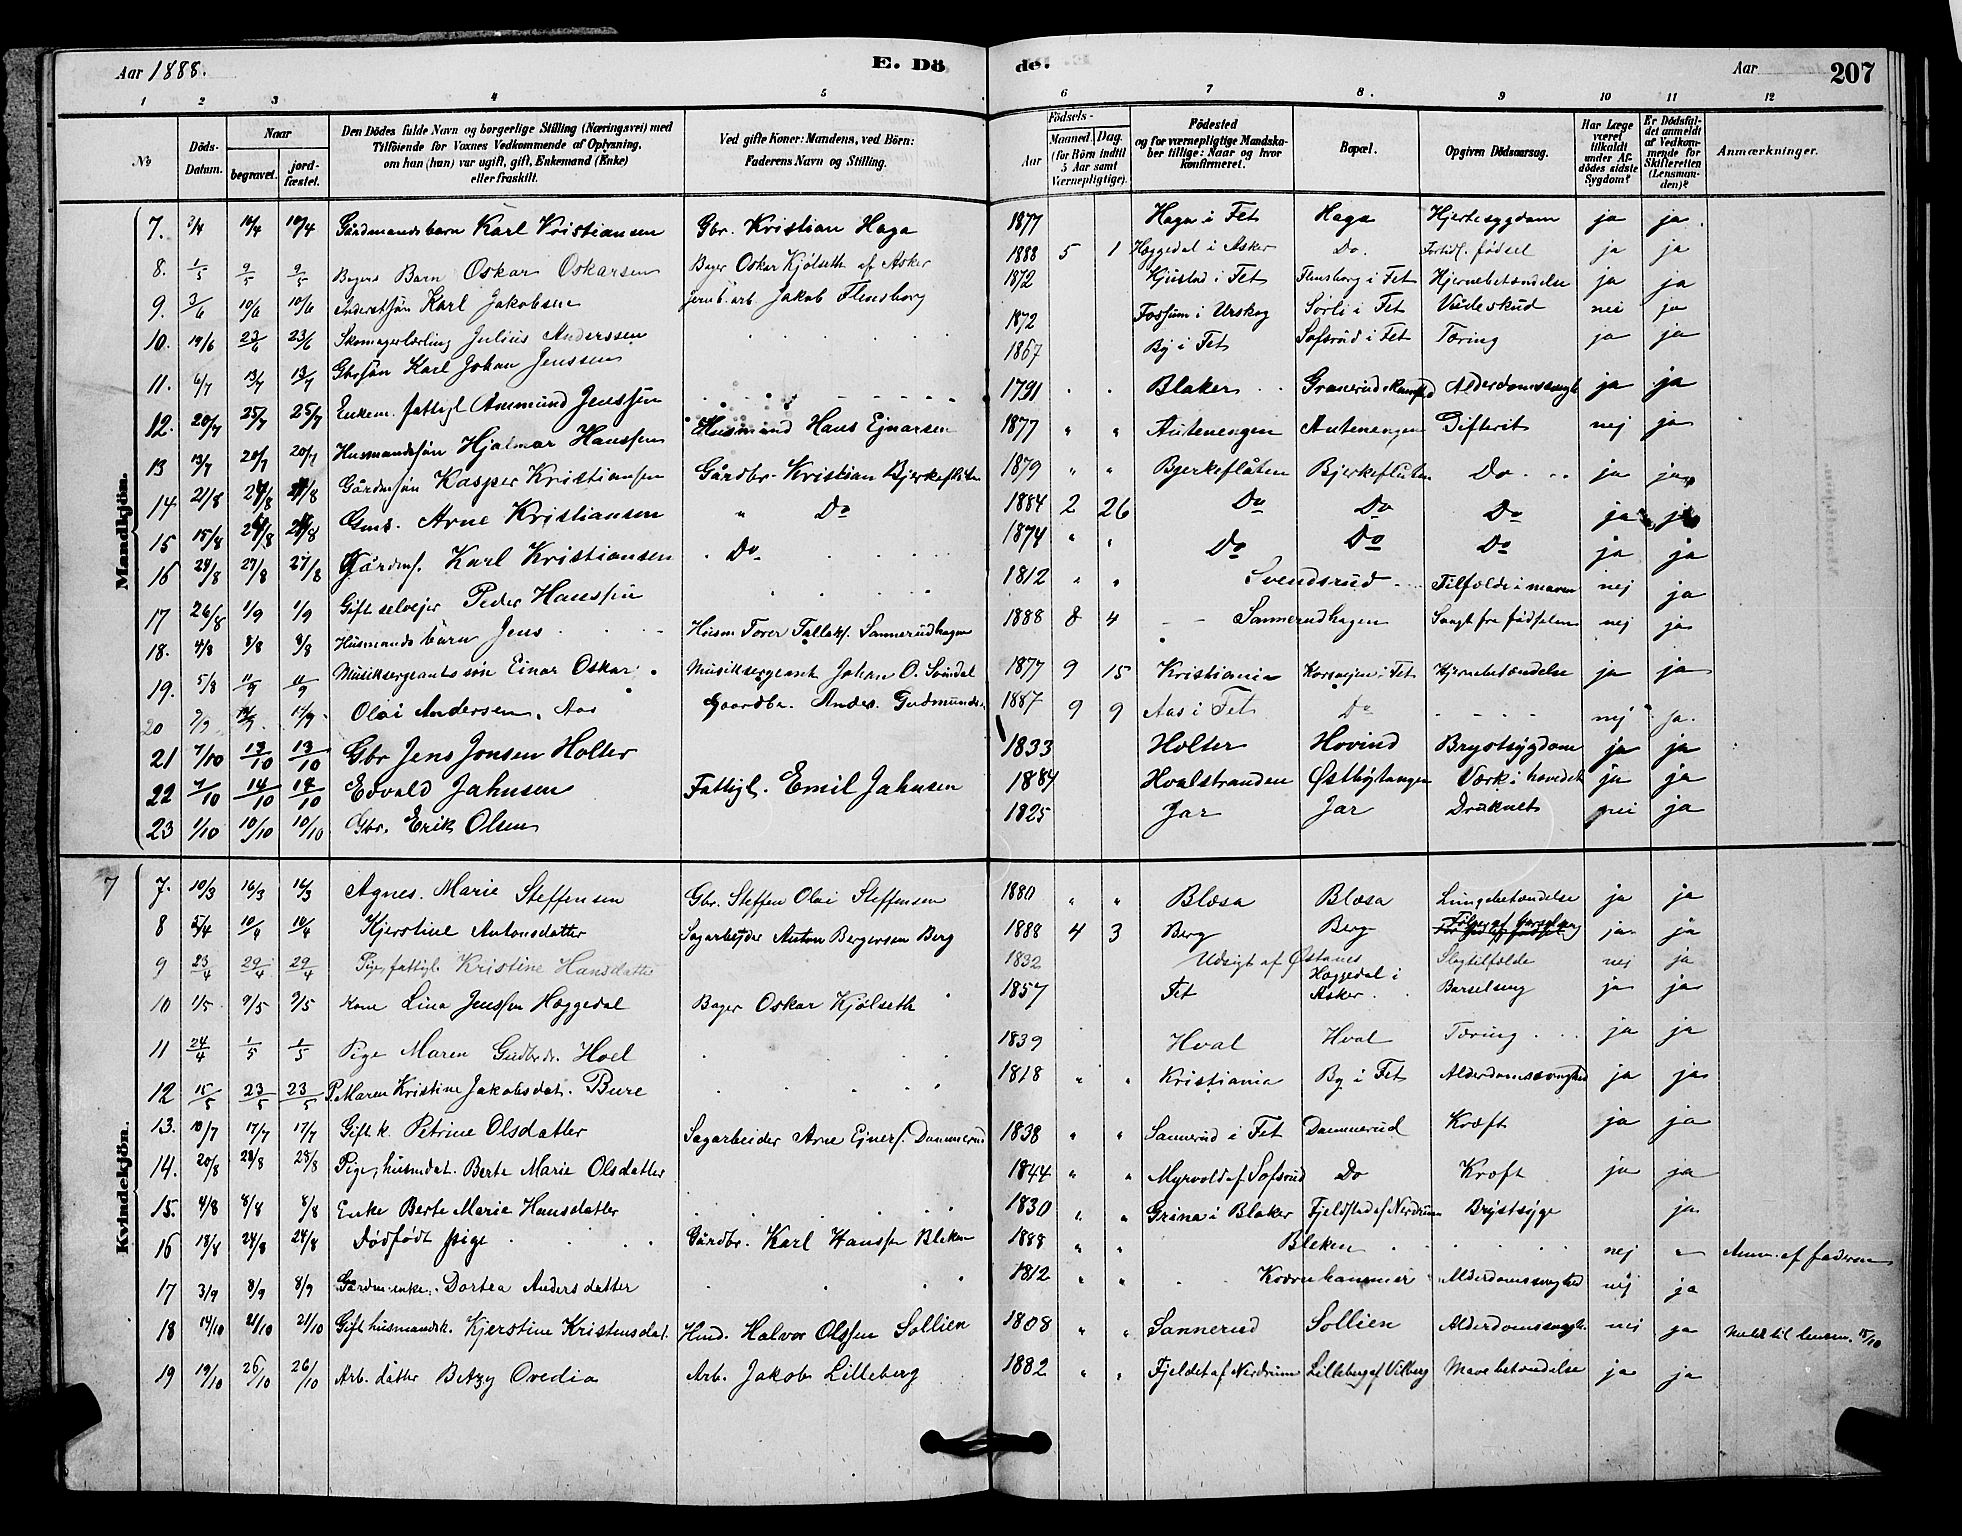 Aar 1888. E. Dö de. Aar 207
1 2 3 4 5 6 7 8. 9 10 11 12
No Döds-Datum. Naar begravet. jordfæstet. Den Dödes fulde Navn og borgerlige Stilling (Næringsvei) med Tilföiende for Voxnes Vedkommende af Oplysning, om han (hun) var ugift, gift, Enkemand (Enke) eller fraskilt. Ved gifte Koner: Mandens, ved Börn: Faderens Navn og Stilling. Födsels- Aar Maaned. Dag. (for Börn indtil 5 Aar samt Værnepligtige). Födested og for værnepligtige Mandskaber tillige: Naar og hvor konfirmeret. Bopæl. Opgiven Dödsaarsag. Har Læge været tilkaldt under Afdödes sidste Sygdom? Er Dödsfaldet anmeldt af Vedkommende for Skifteretten (Lensmanden)? Anmærkninger.
Mandkjön.
7. 3/4 10/4 10/4 Gårdmandsbarn Karl Kristiansen Gbr. Kristian Haga 1877 Haga i Fet Haga Hjertesygdom ja ja
8. 1/5 9/5 9/5 Bagers Barn Oskar Oskarsen Bager Oskar Kjölseth af Asker 1888 5 1 Hæggedal i Asker Do. Fortidl. födsel ja ja
9. 3/6 10/6 10/6 Karl Jakobsen Jernb.arb. Jakob Flensborg 1872 Hjustad i Fet Flensborg i Fet Hjernebetændelse ja ja
10. 19/6 23/6 23/6 Skomagerlærling Julius Anderssen 1872 Fossum i Urskog Sørli i Fet Vådeskud nei ja
11. 6/7 13/7 13/7 Gbrsön Karl Johan Jenssen 1867 By i Fet Søfsrud i Fet Tæring ja ja
12. 20/7 25/7 25/7 Enkem. fattigl Ammund Jenssen 1791 Blaker Granerud Alderdomssvagh ja ja
13 13/7 20/7 20/7 Husmandssön Hjalmar Hanssen Husmand Hans Ejnarsen 1877 " " Autenengen Autenengen Difterit nej ja
14 21/8 27/8 27/8 Gårdmsön Kasper Kristiansen Gårdbr. Kristian Bjerkeflåten 1879 " " Bjerkeflåten Bjerkeflåten Do ja ja
15 15/8 27/8 27/8 Gms. Arne Kristiansen " Do 1884 2 26 Do Do Do ja ja
16 24/8 27/8 27/8 Gårdms. Karl Kristiansen Do 1874 " " Do Do Do ja ja
17 26/8 1/9 1/9 Gift selvejer Peder Hanssen 1812 " " Svendsrud Tilfælde i maven nej ja
18. 4/8 8/8 8/8 Husmandsbarn Jens Husm Torer Tallaks. Sannerudhagen 1888 8 4 Sannerudhagen Svagt fra fødselen nej ja
19. 5/8 11/9 11/9 Musiksergeantssön Einar Oskar Musiksergeant Johan O. Söndal 1877 9 15 Kristiania Korsvejen i Fet Hjernebetændelse ja ja
20 9/9 14/9 14/9 Olai Andersen, Aas Gaardbr. Anders Gudmunds. 1887 9 9 Aas i Fet Do nej ja.
21 7/10 13/10 13/10 Gbr Jens Jonsen Holter 1833 Holter Hovind Brystsygdom ja ja
22 7/10 14/10 14/10 Edvald Jahnsen Fattigl. Emil Jahnsen 1884 Hvalstranden Østbytangen Værk i hovedet ja ja
23 1/10 10/10 10/10 Gbr. Erik Olsen 1825 Jar Jar Druknet nei ja
Kvindekjön.
7 7. 10/3 16/3 16/3 Agnes Marie Steffensen Gbr. Steffen Olai Steffensen 1880 " " Blæsa Blæsa Lungebetændelse ja ja
8 5/4 10/4 10/4 Kjerstine Antonsdatter Sagarbejder Anton Bergersen Berg 1888 4 3 Berg Berg Følger af ja ja
9 23/4 29/4 29/4 Pige, fattigl. Kristine Hansdatter 1832 Udsigt af Østanes Slagtilfælde nej ja
10 1/5 9/5 9/5 Kone Lina Jenssen Hæggedal Bager Oskar Kjölseth 1857 Fet Hæggedal i Asker. Barselseng ja ja
11 24/4 1/5 1/5 Pige Maren Gudbr.dr. Hoel 1839 Hval Hval Tæring ja ja
12 15/5 23/5 23/5 P. Maren Kristine Jakobsdat. Bure 1818 " " Kristiania By i Fet Alderdomssvaghed ja ja
13. 10/7 17/7 17/7 Gift k. Petrine Olsdatter Sagarbeider Arne Ejners. Dammerud 1838 " " Sannerud i Fet Dammerud Kræft ja ja
14. 20/8 28/8 28/8 Pige, husmdat. Berte Marie Olsdatter 1844 " " Myrvold af Søfsrud Do Kræft ja ja
15. 4/8 8/8 8/8 Enke Berte Marie Hansdatter 1830 " " Grina i Blaker Fjeldstad af Nerdrum Brystsyge ja
16 18/8 24/8 24/8 Dødfødt pige Gårdbr. Karl Hanssen Bleken 1888 " " Bleken nej " Anm. af faderen
17 3/9 8/9 8/9 Gårdm.enke. Dortea Andersdatter 1812 " " Kværnhammer Alderdomssvaghed nej ja
18 14/10 21/10 21/10 Gift husmandsk. Kjerstine Kristensdat. Hmd. Halvor Olssen Sollien 1808 " " Sannerud Sollien Alderdomssvagh. nej ja Meldt til lensm. 15/10
19 19/10 26/10 26/10 Arb. datter Betzy Ovedia Arb. Jakob Lilleberg 1882 " " Fjeldet af Nerdrum Lilleberg af Vilberg Mavebetændelse ja ja